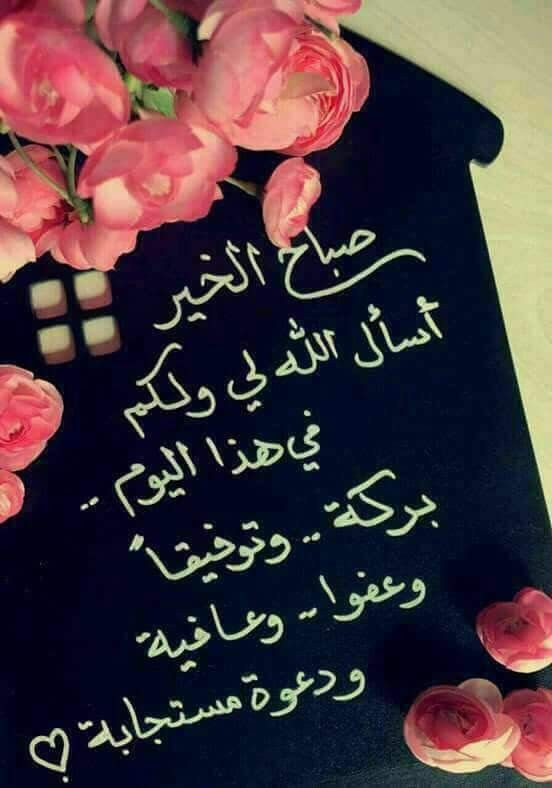 صباح الخير
أسأل الله لي ولكم
في هذا اليوم ..
بركة .. وتوفيقاً
وعفوا .. وعافية
ودعوة مستجابة ♡